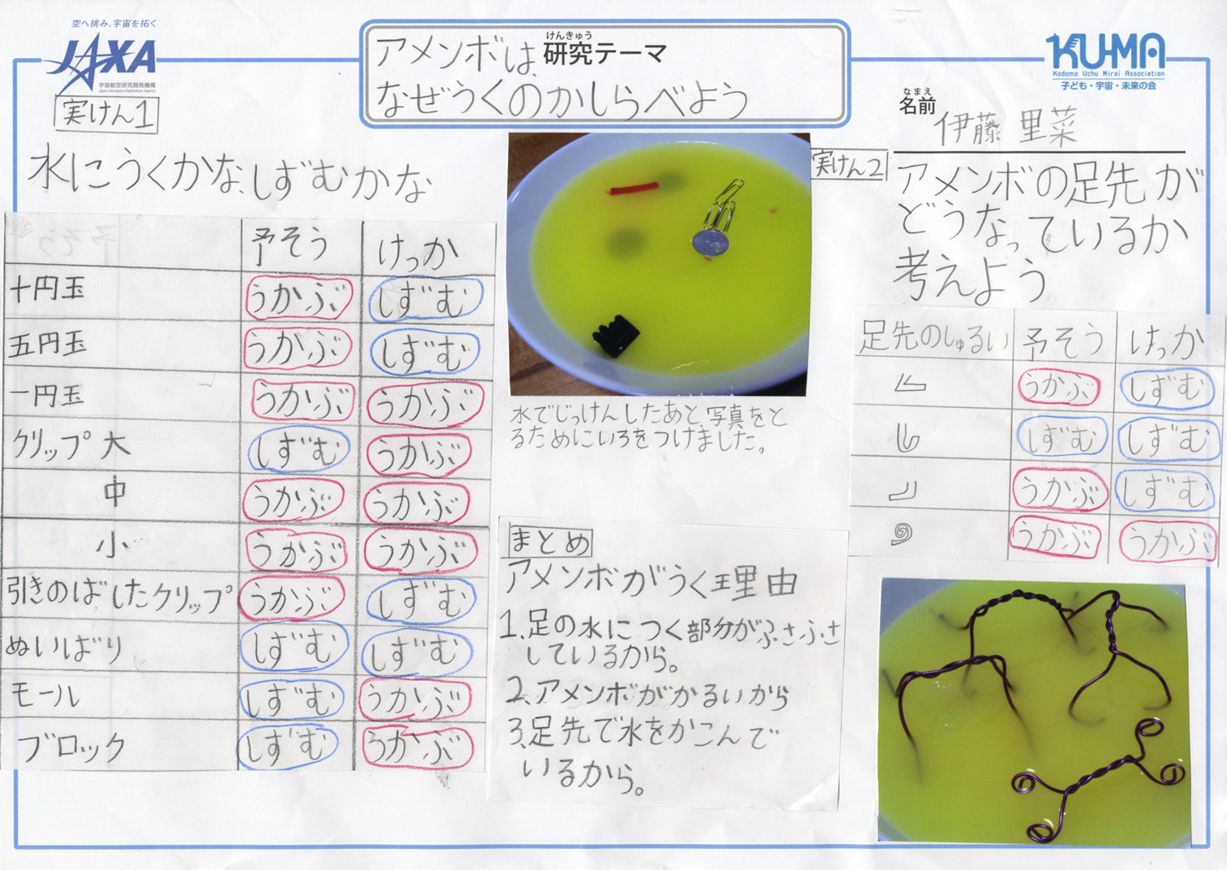 空へ挑み、宇宙を拓く
JAXA
宇宙航空研究開発機構
Japan Aerospace Exploration Agency
けんきゅう
研究テーマ
アメンボは
なぜうくのかしらべよう
KU-MA
Kodomo Uchu Mirai Association
子ども・宇宙・未来の会
なまえ
名前
伊藤 里菜
実けん1
水にうくかな、しずむかな
予そう けっか
十円玉 うかぶ しずむ
五円玉 うかぶ しずむ
一円玉 うかぶ うかぶ
クリップ 大 しずむ うかぶ
中 うかぶ うかぶ
小 うかぶ うかぶ
引きのばしたクリップ うかぶ しずむ
ぬいばり しずむ しずむ
モール しずむ うかぶ
ブロック しずむ うかぶ
水でじっけんしたあと、写真をと
るためにいろをつけました。
まとめ
アメンボがうく理由
1.足の水につく部分がふさふさ
しているから。
2.アメンボがかるいから
3.足先で水をかこんで
いるから。
実けん2
アメンボの足先が
どうなっているか
考えよう
足先のしゅるい 予そう けっか
うかぶ しずむ
しずむ しずむ
うかぶ しずむ
うかぶ うかぶ